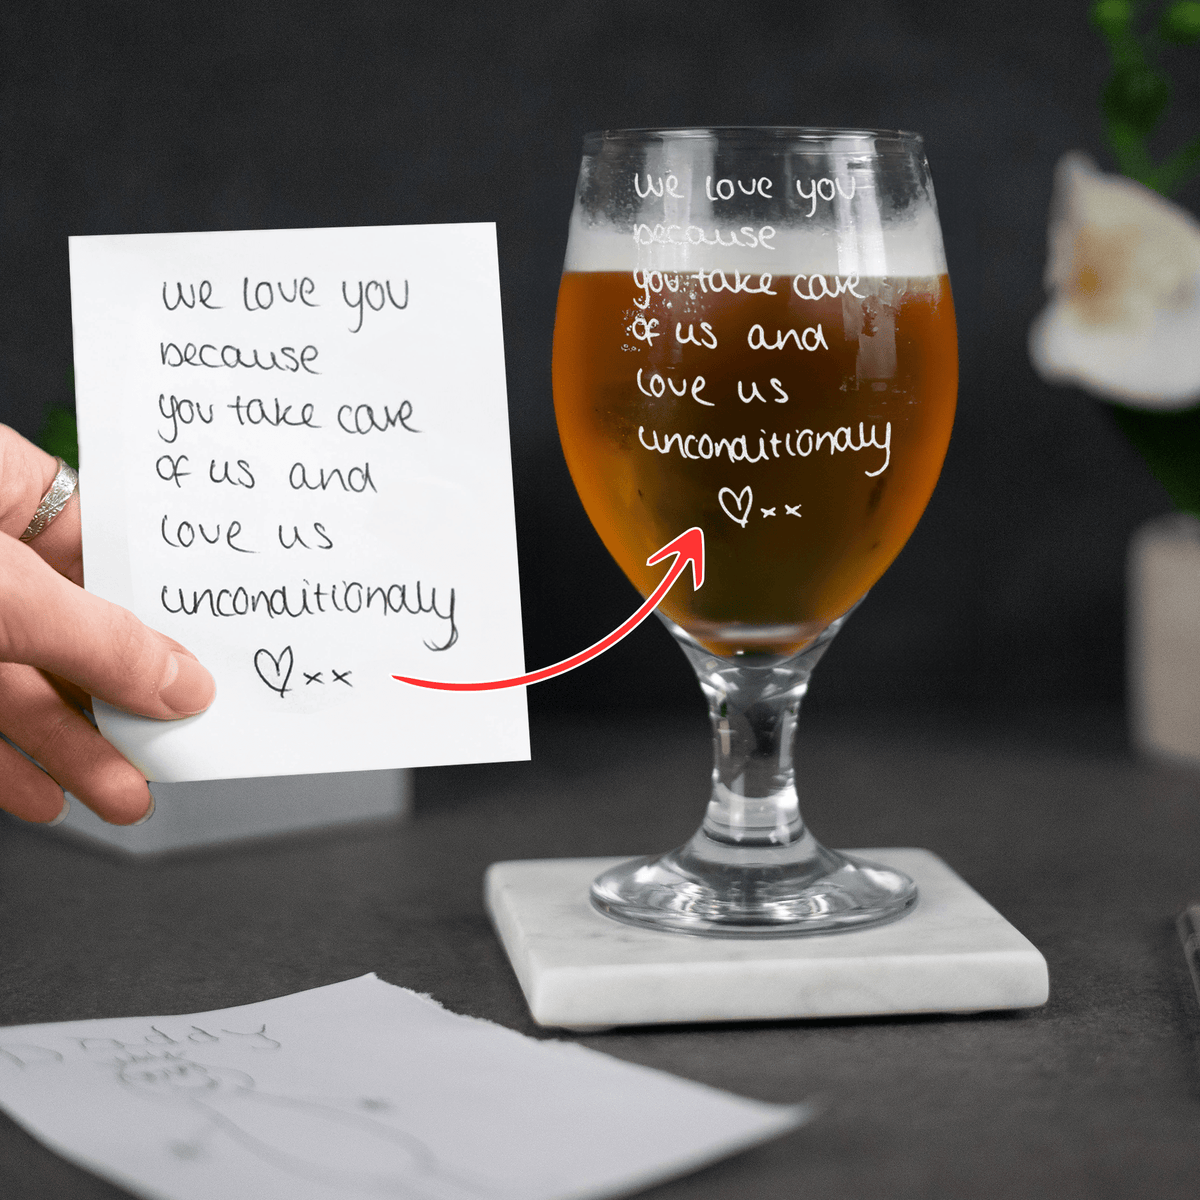 we love you
because
you take care
of us and
love us
unconditionally
♡xx
we love you
because
you take care
of us and
love us
unconditionally
♡xx
Daddy